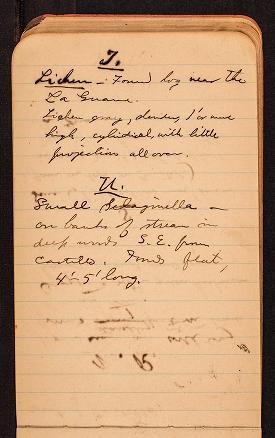 T.
Lichen – Found log near the
La Guama.
Lichen gray, slender, 1' or more
high, cylindical, with little
projections all over.
U.
Small Selaginella –
on banks of stream in
deep woods S.E. from
Castillo. Fronds flat,
4'-5' long.